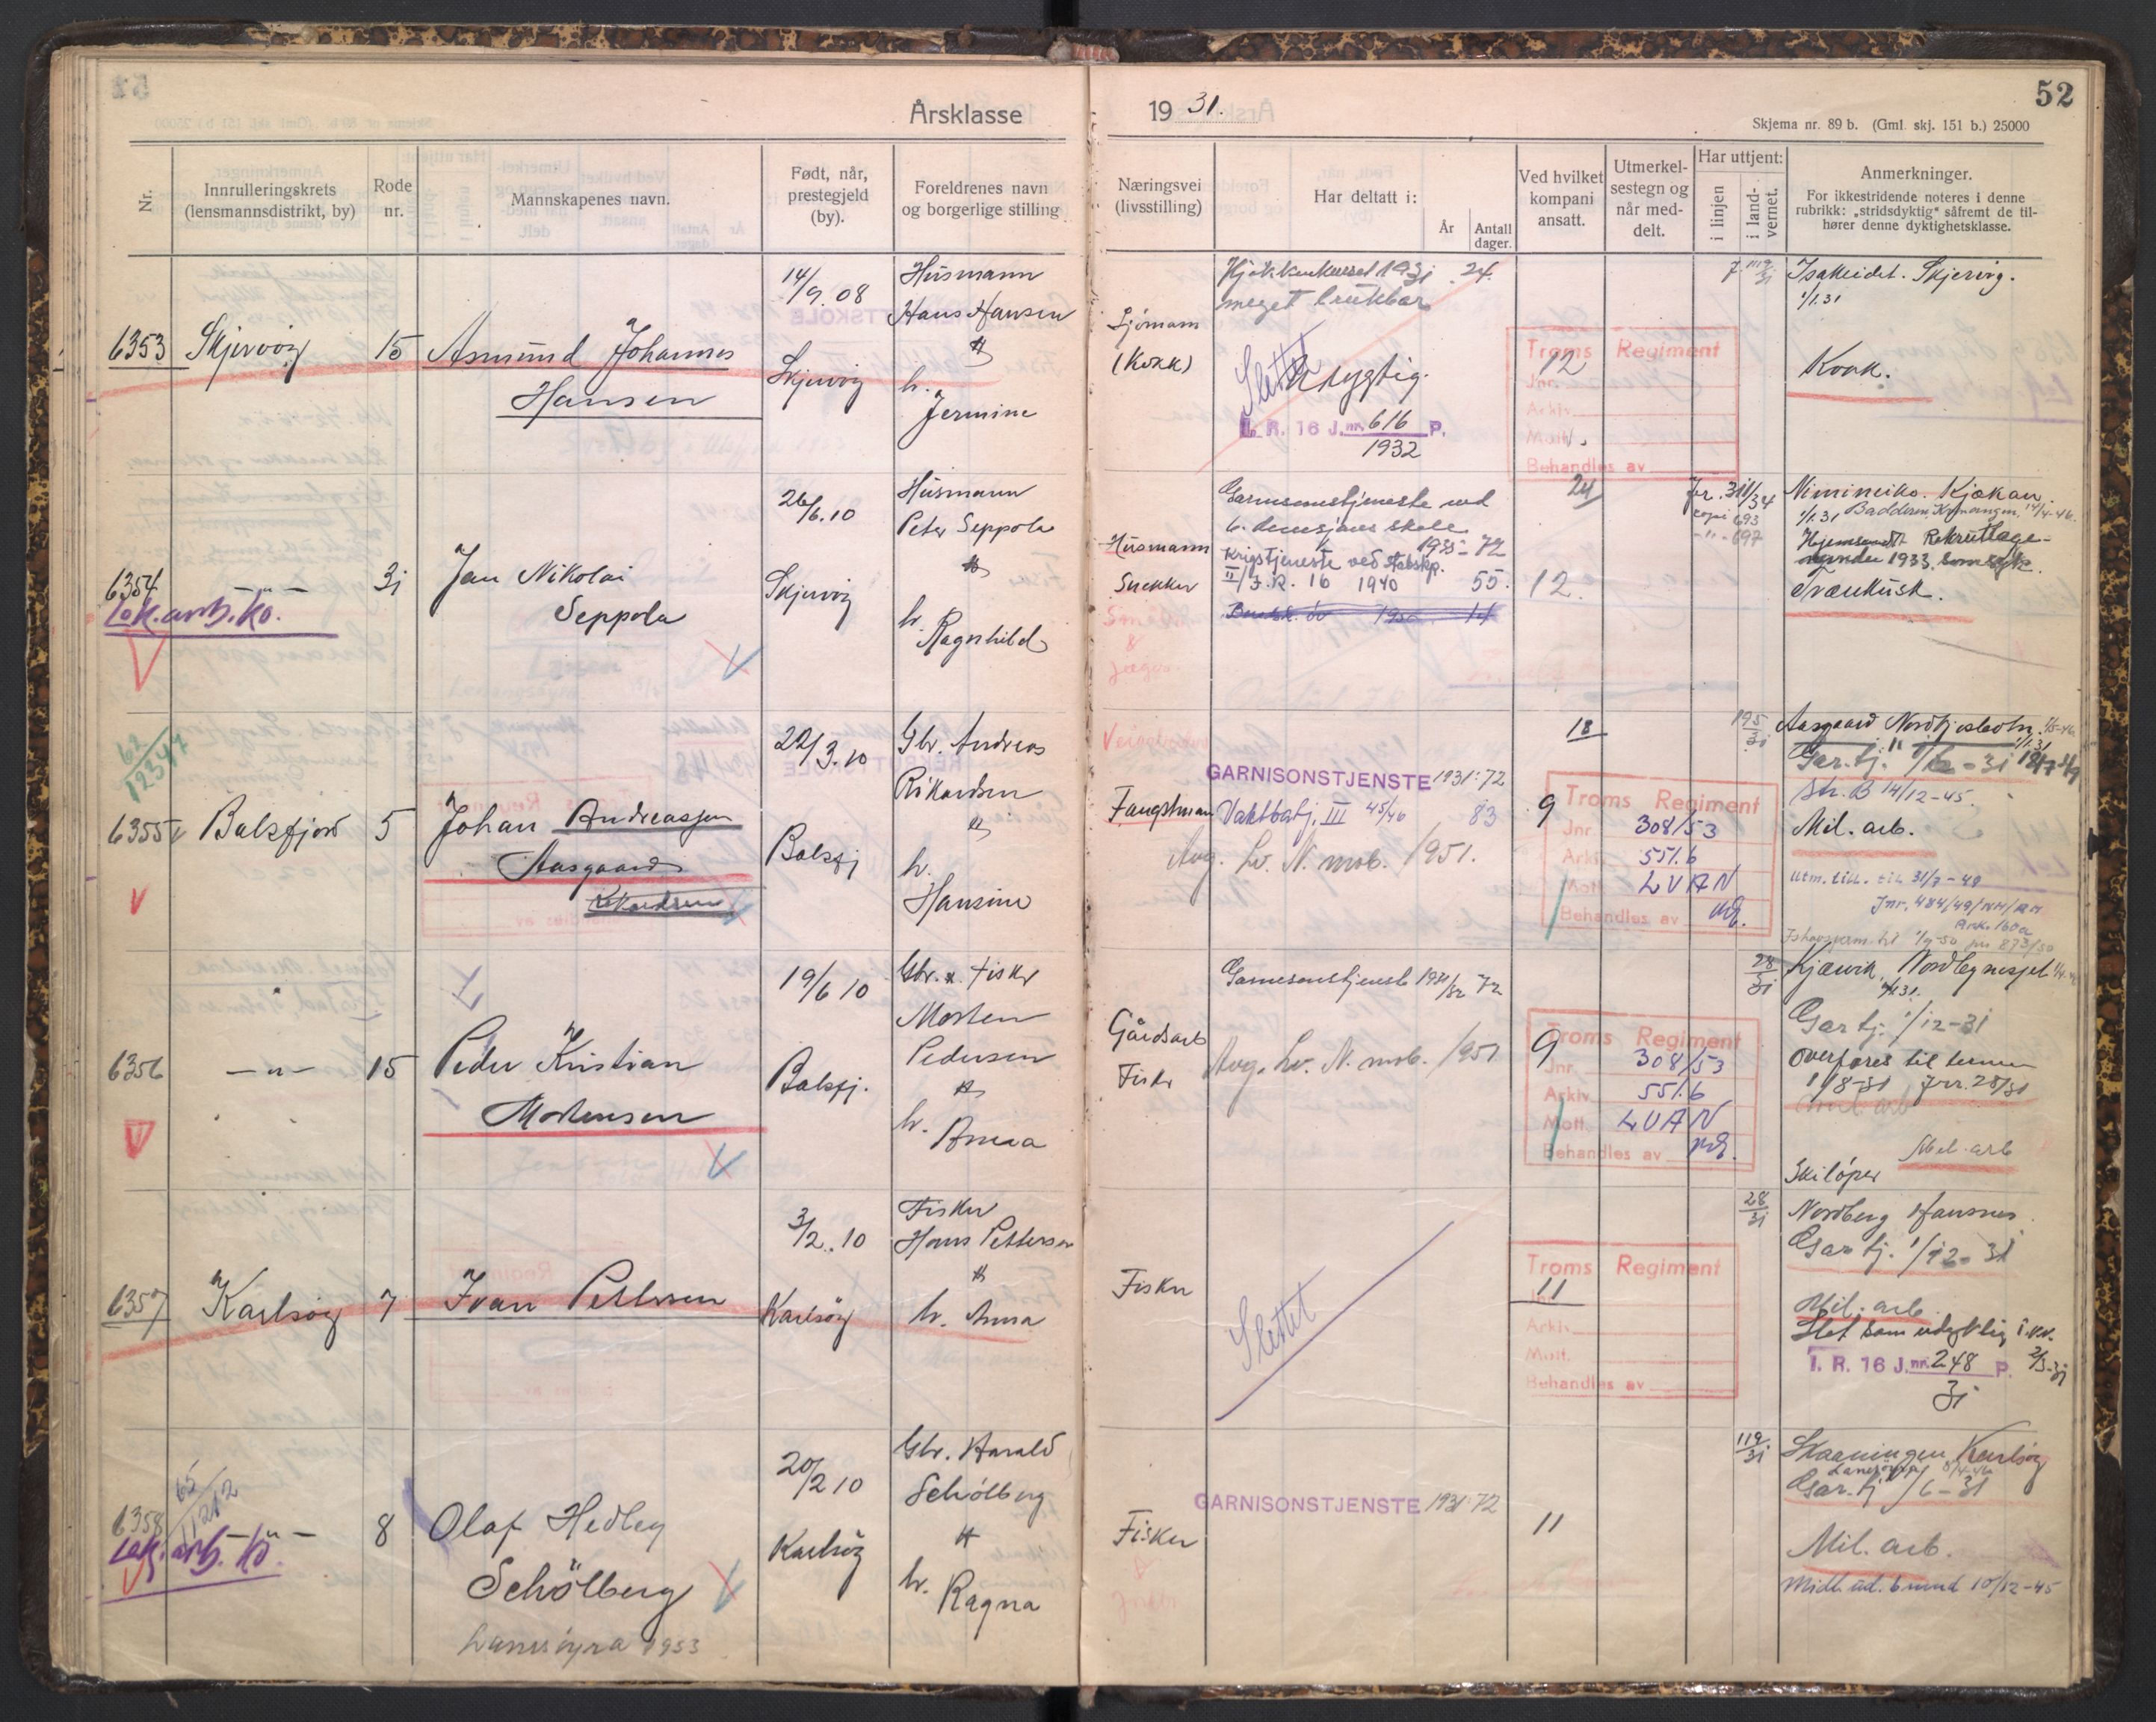 52
Årsklasse 1931.
Skjema nr. 89 b. (Gml. skj. 151 b.) 25000
Nr.
Innrulleringskrets
(lensmannsdistrikt, by)
Rode
nr.
Mannskapenes navn.
Født, når,
prestegjeld
(by).
Foreldrenes navn
og borgerlige stilling
Næringsvei
(livsstilling)
Har deltatt i:
År
Antall
dager.
Ved hvilket
kompani
ansatt.
Utmerkel-
sestegn og
når med-
delt.
Har uttjent:
i linjen
i land-
vernet.
Anmerkninger.
For ikkestridende noteres i denne
rubrikk: „stridsdyktig“ såfremt de til-
hører denne dyktighetsklasse.
6353
Skjervøy
15
Asmund Johannes
Hansen
14/9.08
Skjervøy
Husmann
Hans Hansen
h.
Jermine
(Kokk)
1931 24.
meget brukbar
Slettet
I. R. 16 J. nr. 616 P.
1932
12
Troms Regiment
Jnr.
Arkiv
Mott.
Behandles av
Kokk.
6354
Lok.arb.ko.
— " —
31
Jan Nikolai
Seppola
26/6.10
Skjervøy
Husmann
Peter Seppola
h.
Ragnhild
Husmann
Snekker
Garnisonstjeneste ved
6. divisjons skole
1935 - 72
Krigstjeneste ved stabskp.
II/I.R. 16 1940 55.
24
12.
Kjækan
1/1.31
Rekruttlage-
1933.
Trænkusk.
62/12347
6355
Balsfjord
5
Johan Andreassen
Aasgaard
Rikardsen
22/3.10
Balsfj
Gbr. Andreas
Rikardsen
h.
Hansine
Fangstmann
GARNISONSTJENSTE 1931: 72
Vaktbatj. III 45/46 83
Avg. Lv. N. mob. 1951.
18
9
Troms Regiment
Jnr 308/53
Arkiv 551.6
Mott LVAN
Behandles av
195/31
Aasgaard
Str. B 14/12-45.
Mil. arb.
Utm. till. til 31/7-49
Jnr. 484/49/
Ark. 160a
6356
— " —
15
Peder Kristian
Mortensen
19/6 10
Balsfj.
Gbr. & Fisker
Morten
Pedersen
h.
Anna
Gårdsarb
Fisker
Garnisonstjenst 1931/32 72
Avg. Lv. N. mob. 1951
9
Troms Regiment
Jnr 308/53
Arkiv 551.6
Mott. LVAN
Behandles av
28/31
Kjærvik
Gar tj. 1/12-31
Overføres til
1/8-31 Jnr. 28/31
Mil. arb
Skiløper
6357
Karlsøy
7
Ivar Pettersen
3/2.10
Karlsøy
Fisker
Hans Pettersen
h. Anna
Fisker
Slettet
11
Troms Regiment
Jnr.
Arkiv
Mott.
Behandles av
28/31
Nordberg Hansnes
Gar tj. 1/12-31
Mil. arb.
Slet som udyktig
I. R. 16 J. nr. 248 P.
31
65/11212
6358
Lok. arb. ko.
— " —
8
Olaf Hedley
Schölberg
Lanesøyra 1953
20/2 10
Karlsøy
Gbr. Harald
Schölberg
h.
Ragna
Fisker
GARNISONSTJENSTE 1931: 72
11
119/31
Skaaningen Karlsøy
Gar. tj 1/6-31
Mil. arb.
Midl. ud. 10/12-45